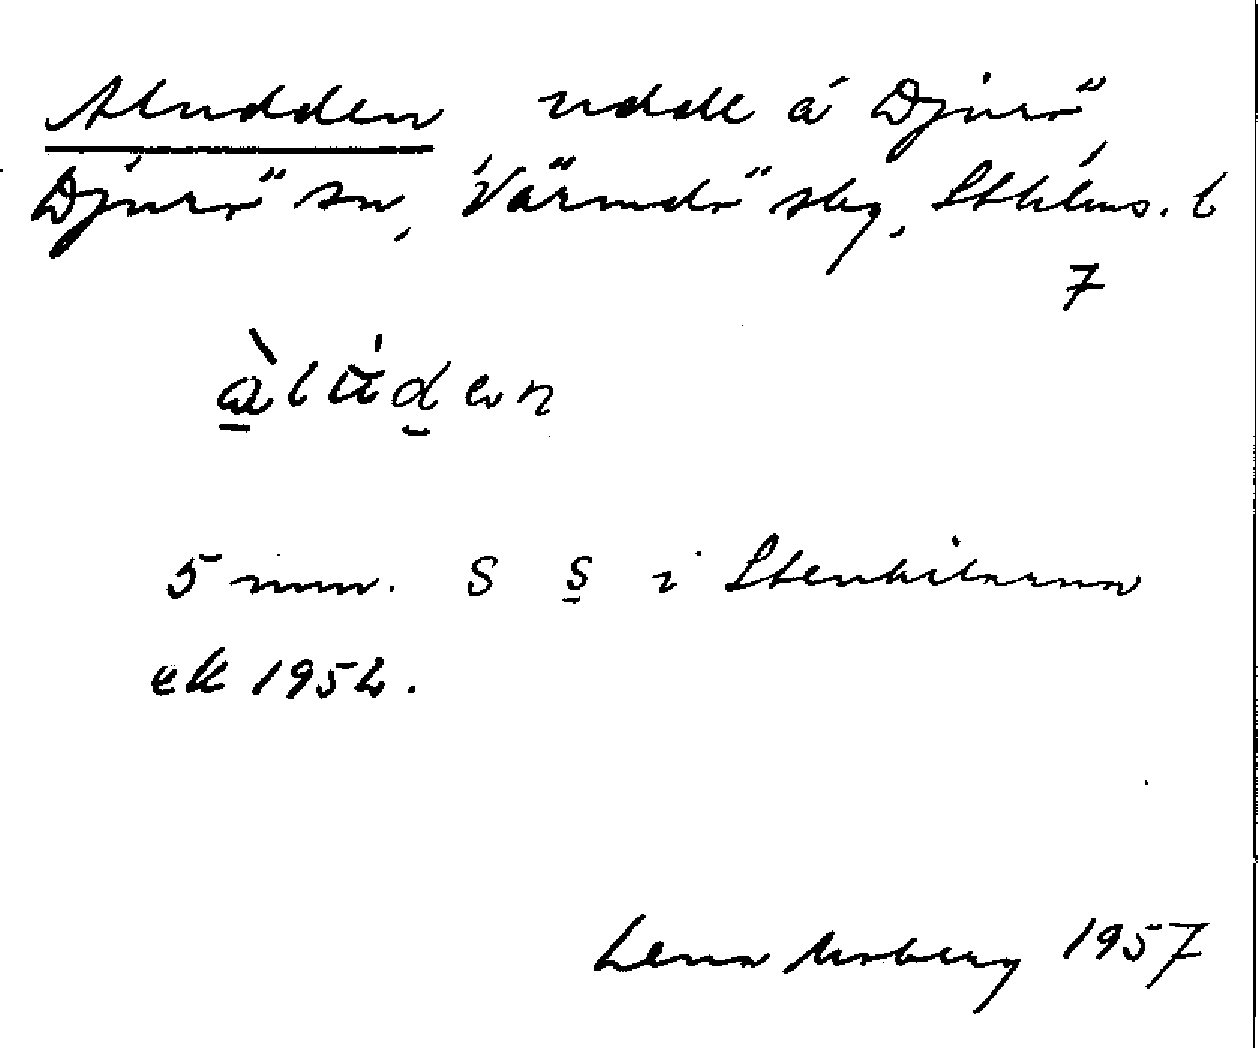 Aludden udde å Djurö
Djurö sn, Värmdö slg, Sthlms. l
7
5 mm. S S i Stenkilarna
ek 1952.
Lena Moberg 1957